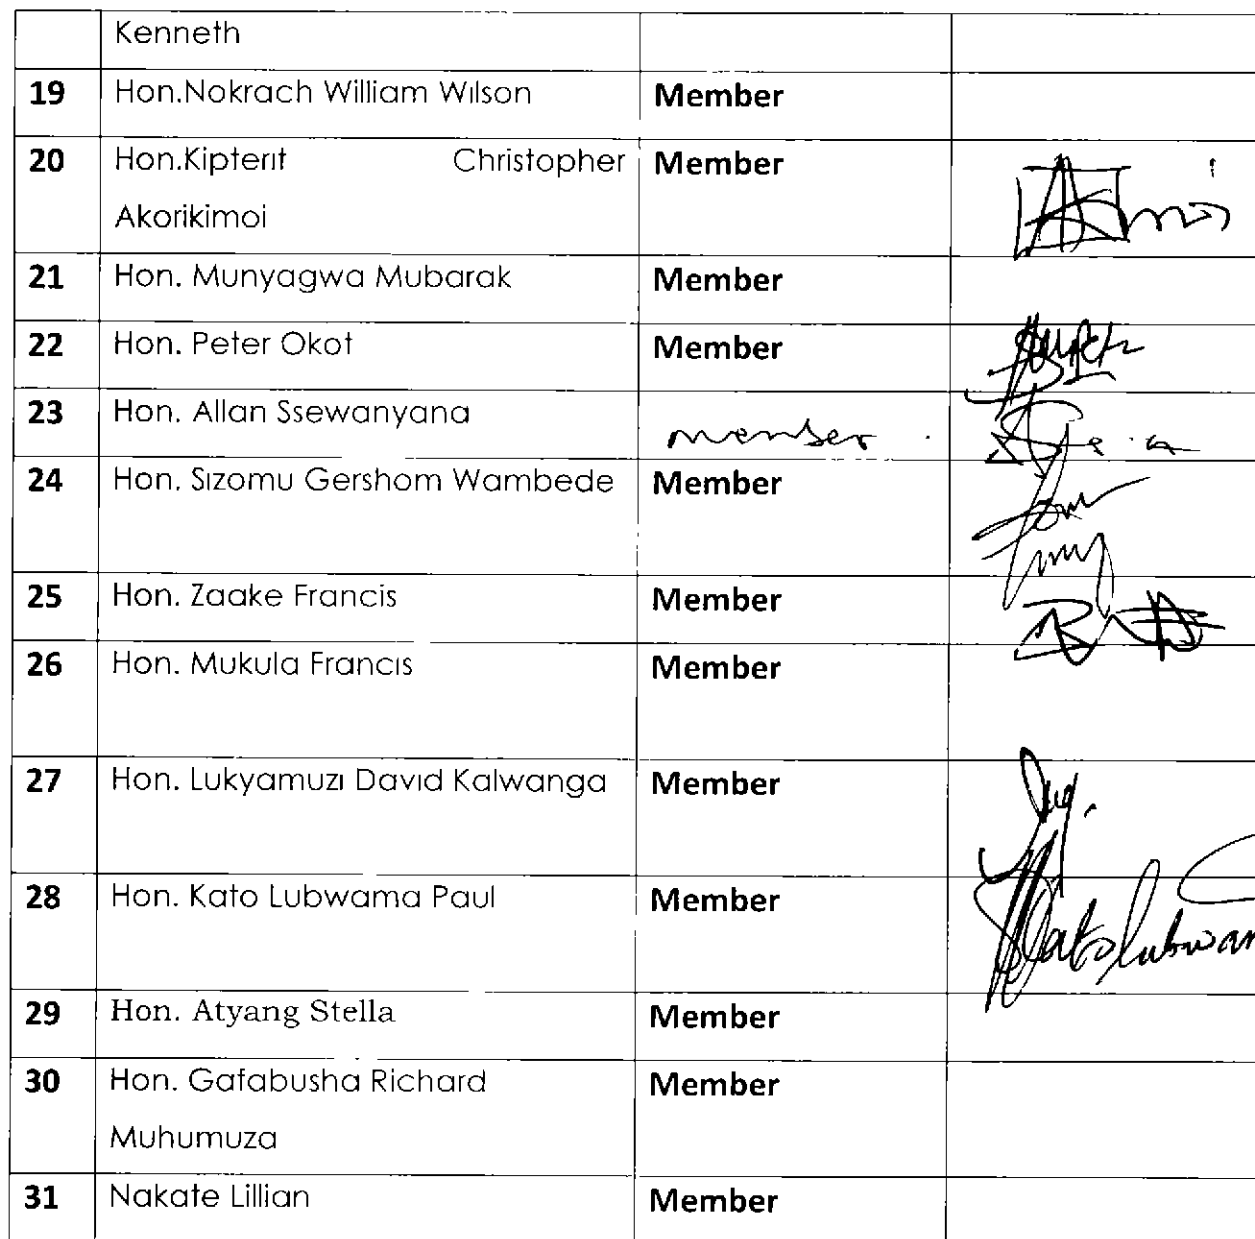 Kenneth
19 Hon.Nokrach William Wilson Member
20 Hon.Kipterit Christopher Member
Akorikimoi
21 Hon. Munyagwa Mubarak Member
22 Hon. Peter Okot Member
23 Hon. Allan Ssewanyana member
24 Hon. Sizomu Gershom Wambede Member
25 Hon. Zaake Francis Member
26 Hon. Mukula Francis Member
27 Hon. Lukyamuzi David Kalwanga Member
28 Hon. Kato Lubwama Paul Member
29 Hon. Atyang Stella Member
30 Hon. Gafabusha Richard Member
Muhumuza
31 Nakate Lillian Member